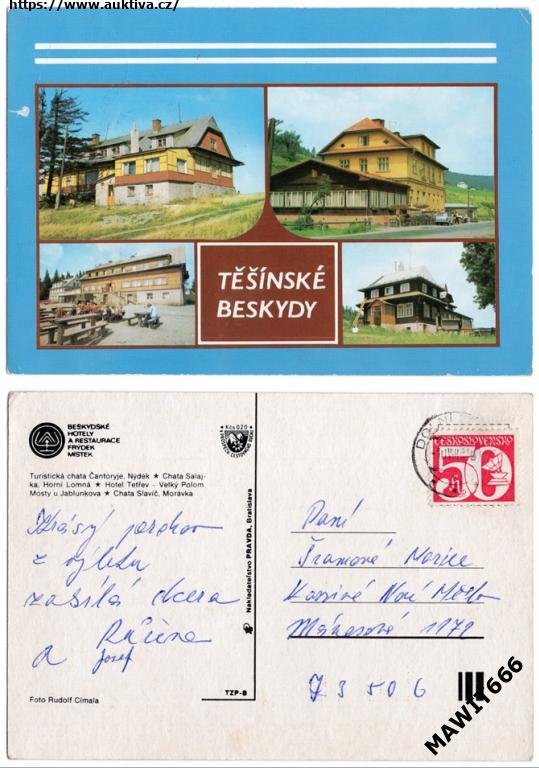 https://www.auktiva.cz/
TĚŠÍNSKÉ
BESKYDY
BESKYDSKÉ
HOTELY
A RESTAURACE
FRÝDEK
MÍSTEK
Kčs 0,20
Turistická chata Čantoryje, Nýdek ★ Chata Salaj-
ka, Horní Lomná ★ Hotel Tetřev – Velký Polom
Mosty u Jablunkova ★ Chata Slavíč, Morávka
Krásný pozdrav
z výletu
zasílá dcera
Růžena
a Josef
Foto Rudolf Címala
Nakladateľstvo PRAVDA, Bratislava
TZP-B
ČESKOSLOVENSKO
50
Paní
Šramová Marie
Karviná Nové Město
Mánesova 1172
73506
MAW11666